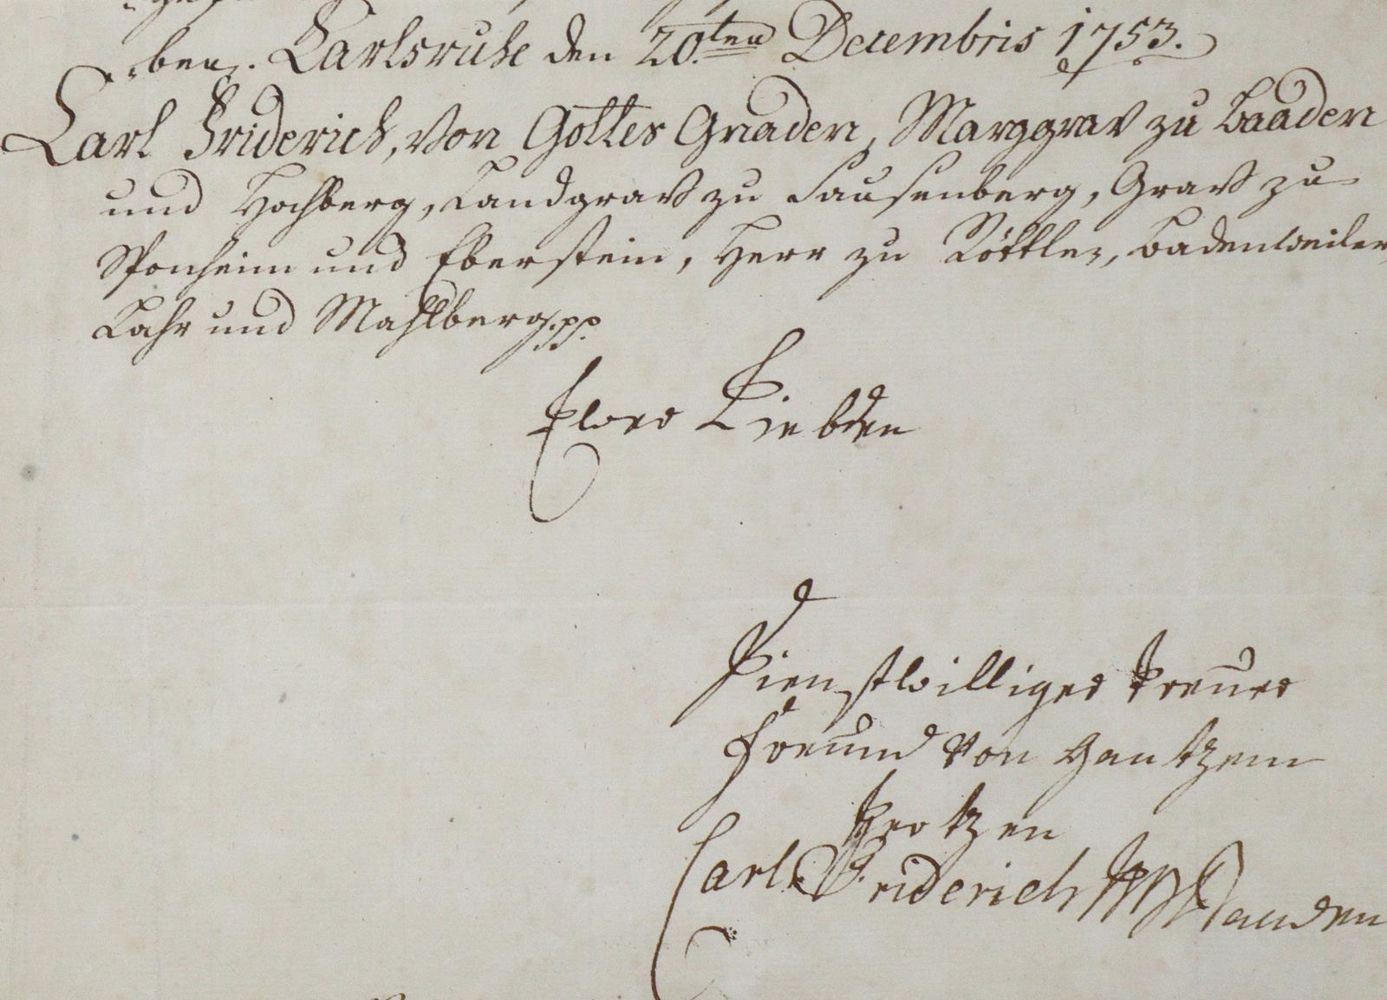 ben. Carlsruhe den 20.ten Decembris 1753.
Carl Friderich, von Gottes Gnaden, Marggrav zu Baaden
und Hochberg, Landgrav zu Sausenberg, Grav zu
Sponheim und Eberstein, Herr zu Röttlen, Badenweiler,
Lahr und Mahlberg. pp.
Ewer Liebden
Dienstwilliger treuer
Freund von gantzem
Hertzen
Carl Friderich M Baaden